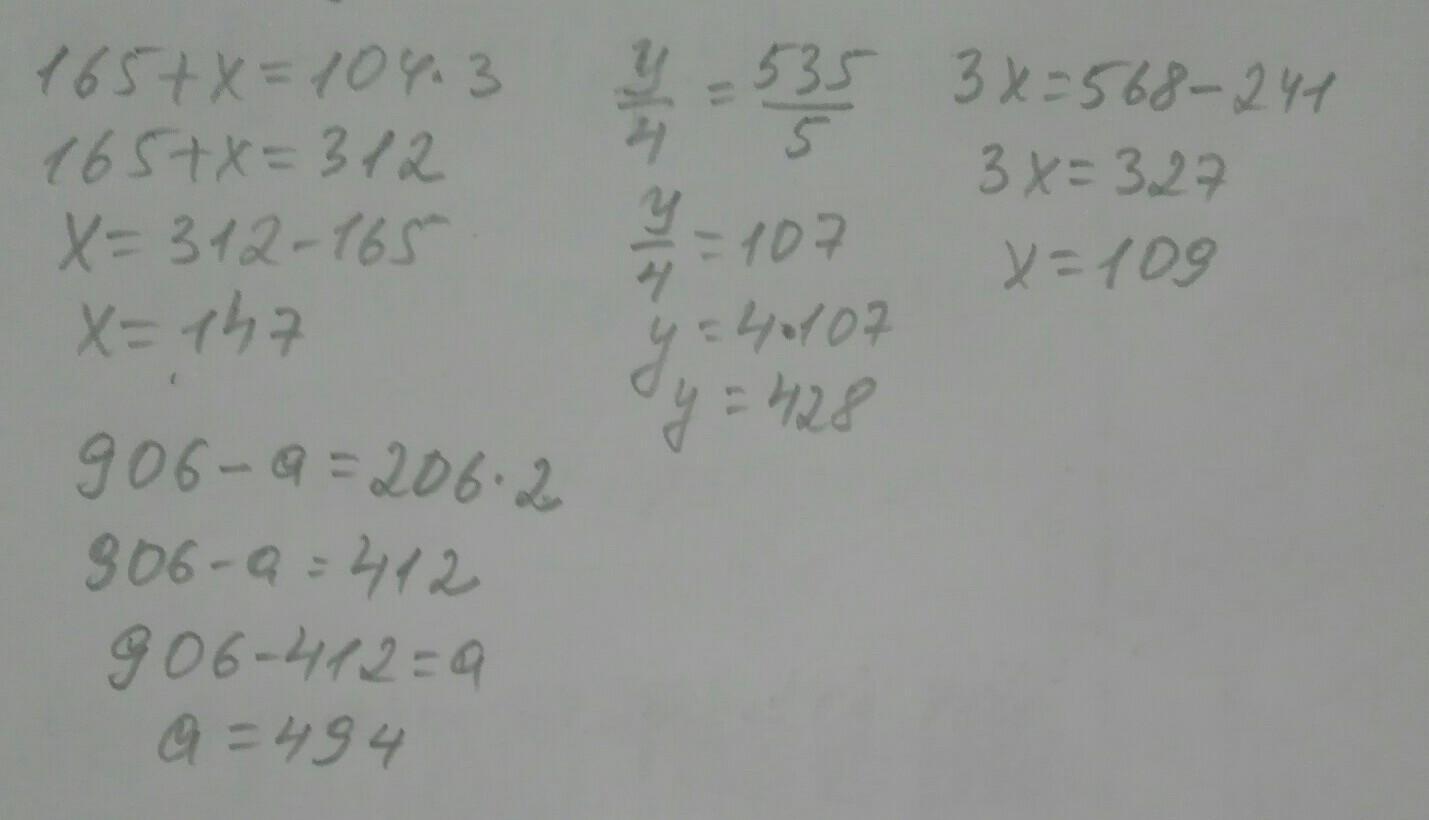 165+x=104·3
165+x=312
x=312-165
x=147
y/4=535/5
y/4=107
y=4·107
y=428
3x=568-241
3x=327
x=109
906-a=206·2
906-a=412
906-412=a
a=494